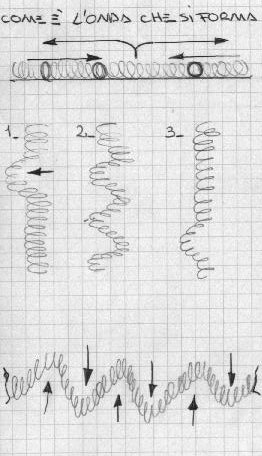 COME È L'ONDA CHE SI FORMA
1- 2- 3-